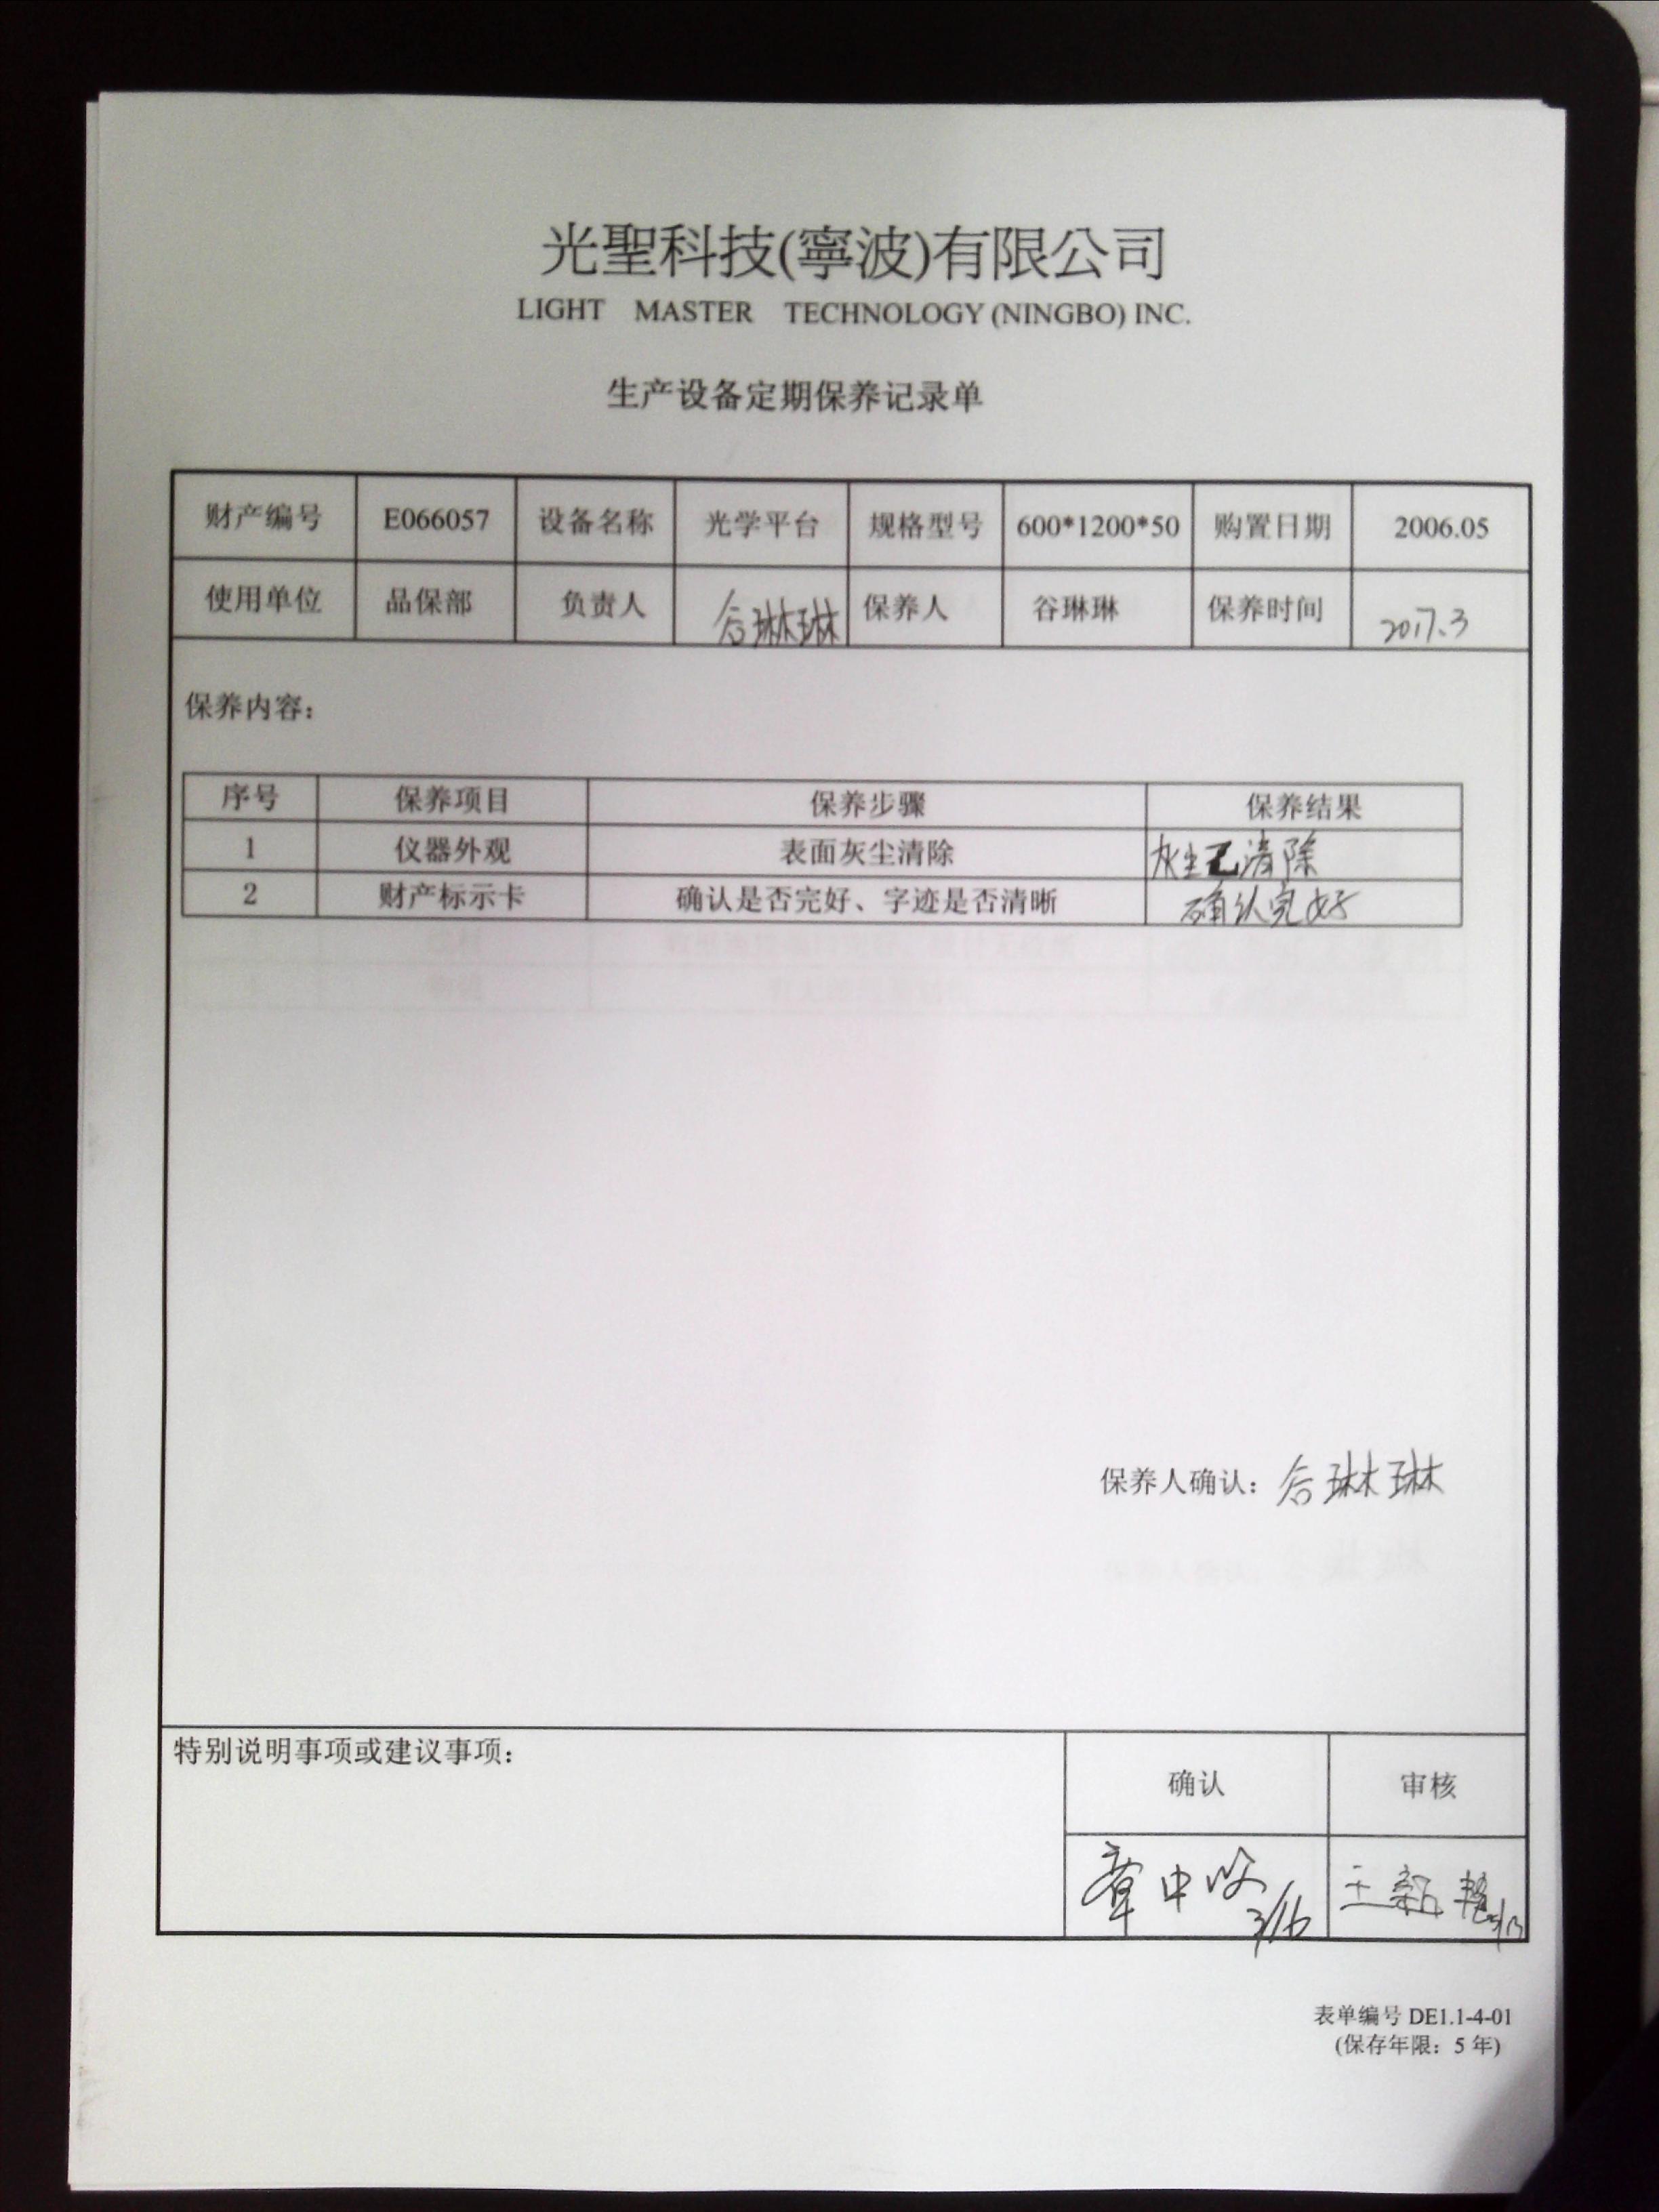 光聖科技(寧波)有限公司
LIGHT MASTER TECHNOLOGY (NINGBO) INC.
生产设备定期保养记录单
财产编号 E066057 设备名称 光学平台 规格型号 600*1200*50 购置日期 2006.05
使用单位 品保部 负责人 谷琳琳 保养人 谷琳琳 保养时间 2017.3
保养内容：
序号 保养项目 保养步骤 保养结果
1 仪器外观 表面灰尘清除 灰尘已清除
2 财产标示卡 确认是否完好、字迹是否清晰 确认完好
保养人确认：谷琳琳
特别说明事项或建议事项：
确认 审核
3/16
表单编号 DE1.1-4-01
(保存年限：5 年)